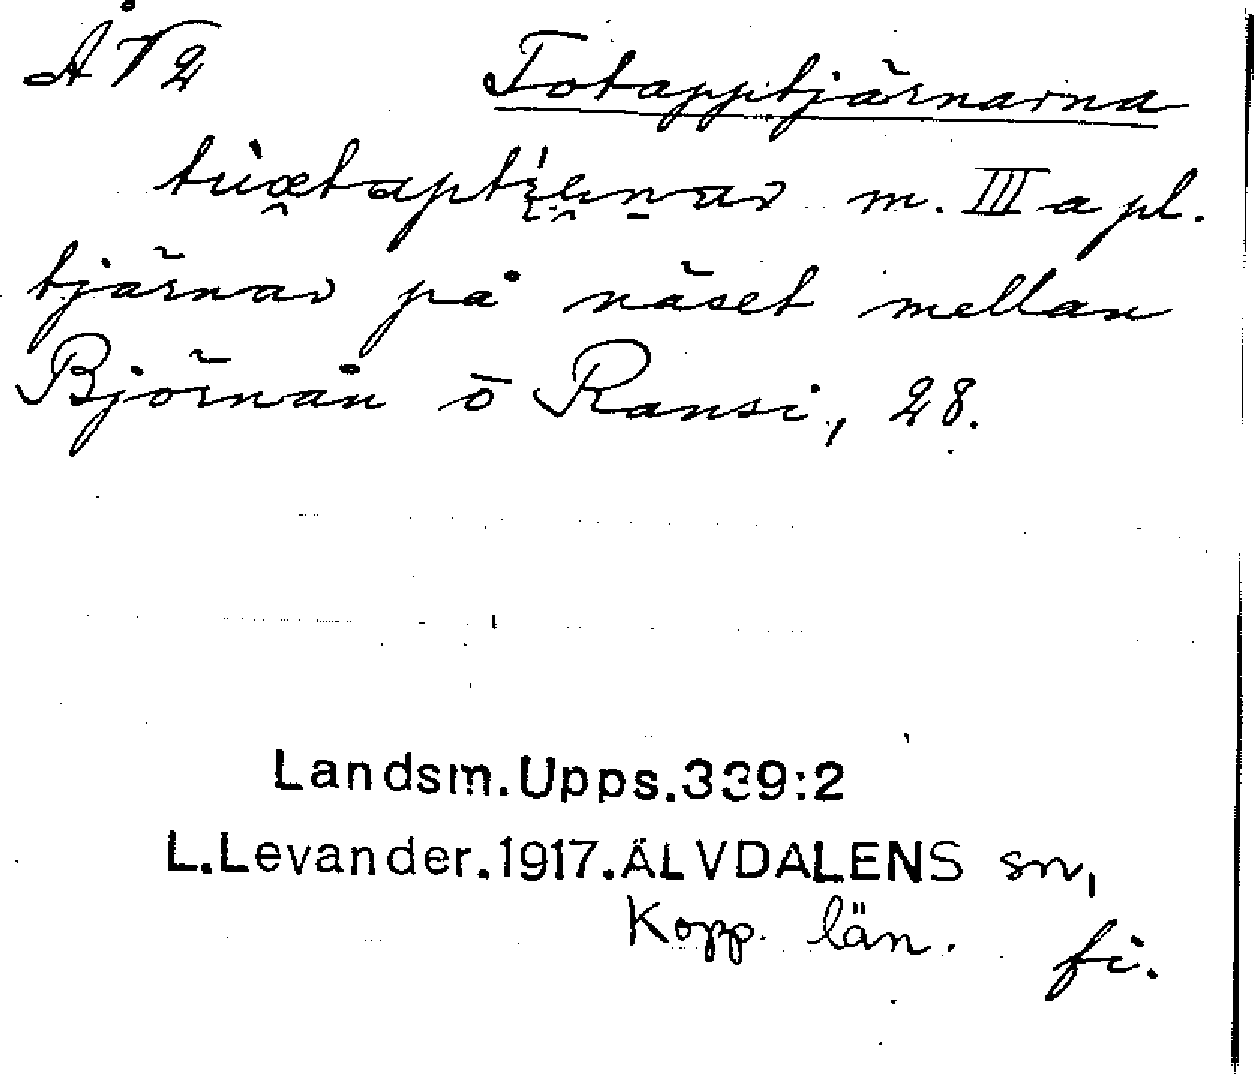 Å V2 Totapptjärnarna
m. III a pl.
tjärnar på näset mellan
Björnån o Ransi, 28.
Landsm.Upps.339:2
L.Levander.1917.ÄLVDALENS sn,
Kopp. län.
fi.